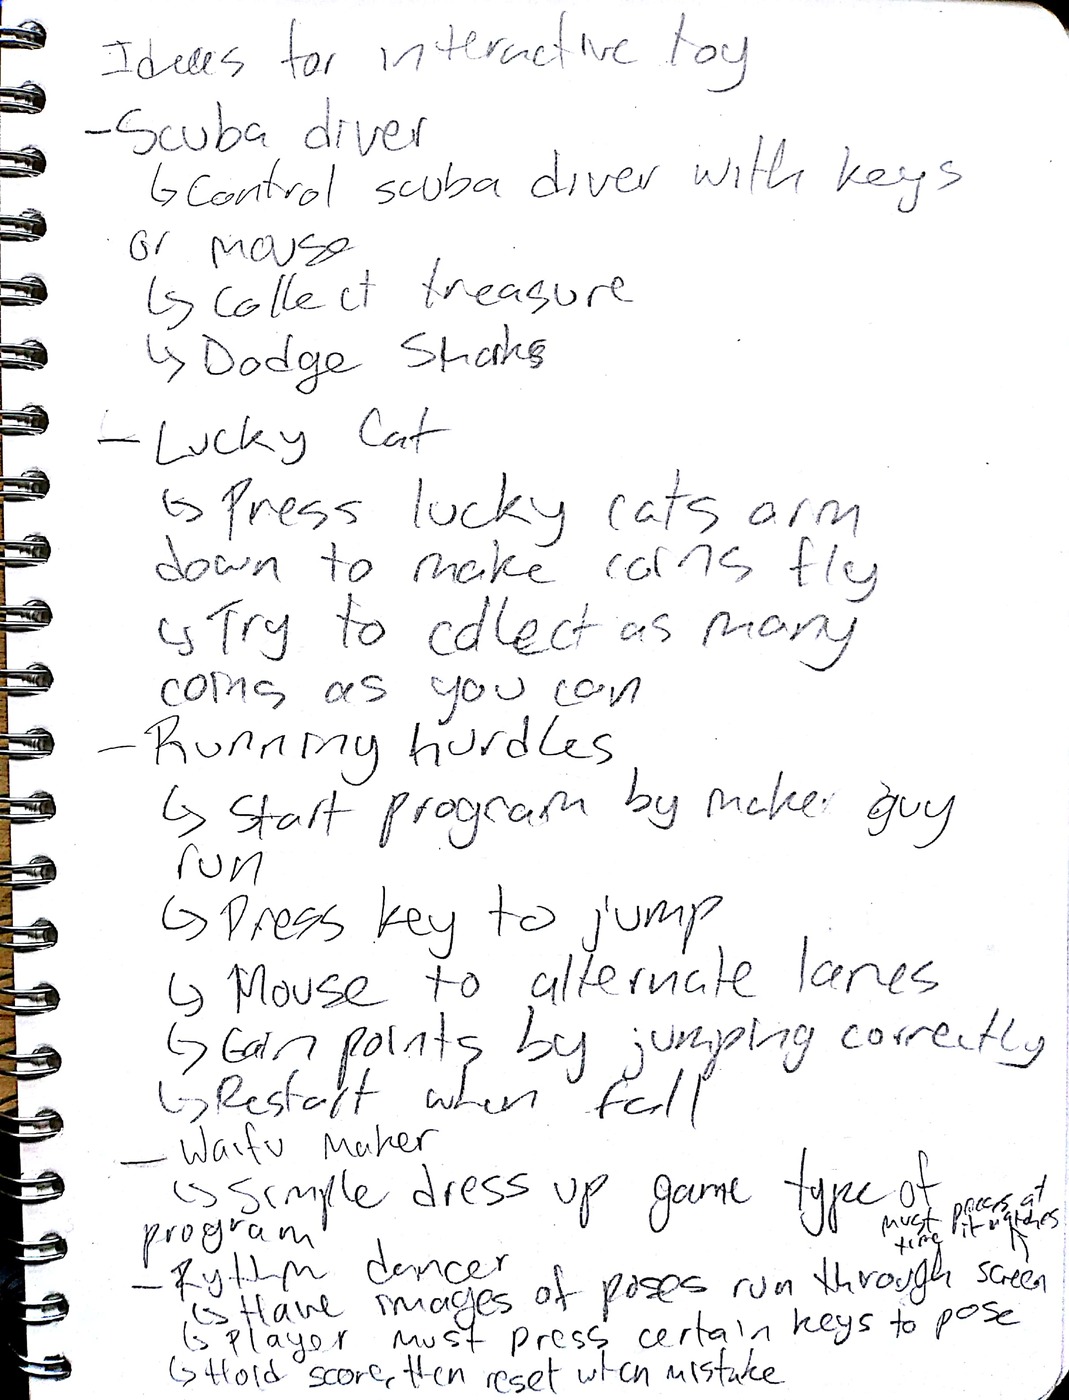 Ideas for interactive toy
- Scuba diver
↳ Control scuba diver with keys
or mouse
↳ Collect treasure
↳ Dodge Sharks
- Lucky Cat
↳ Press lucky cats arm
down to make coins fly
↳ Try to collect as many
coins as you can
- Running hurdles
↳ Start program by make guy
run
↳ Press key to jump
↳ Mouse to alternate lanes
↳ Gain points by jumping correctly
↳ Restart when fall
- Waifu Maker
↳ Simple dress up game type of
program
must at
time it matches
- Rythm dancer
↳ Have images of poses run through screen
↳ Player must press certain keys to pose
↳ Hold score, then reset when mistake